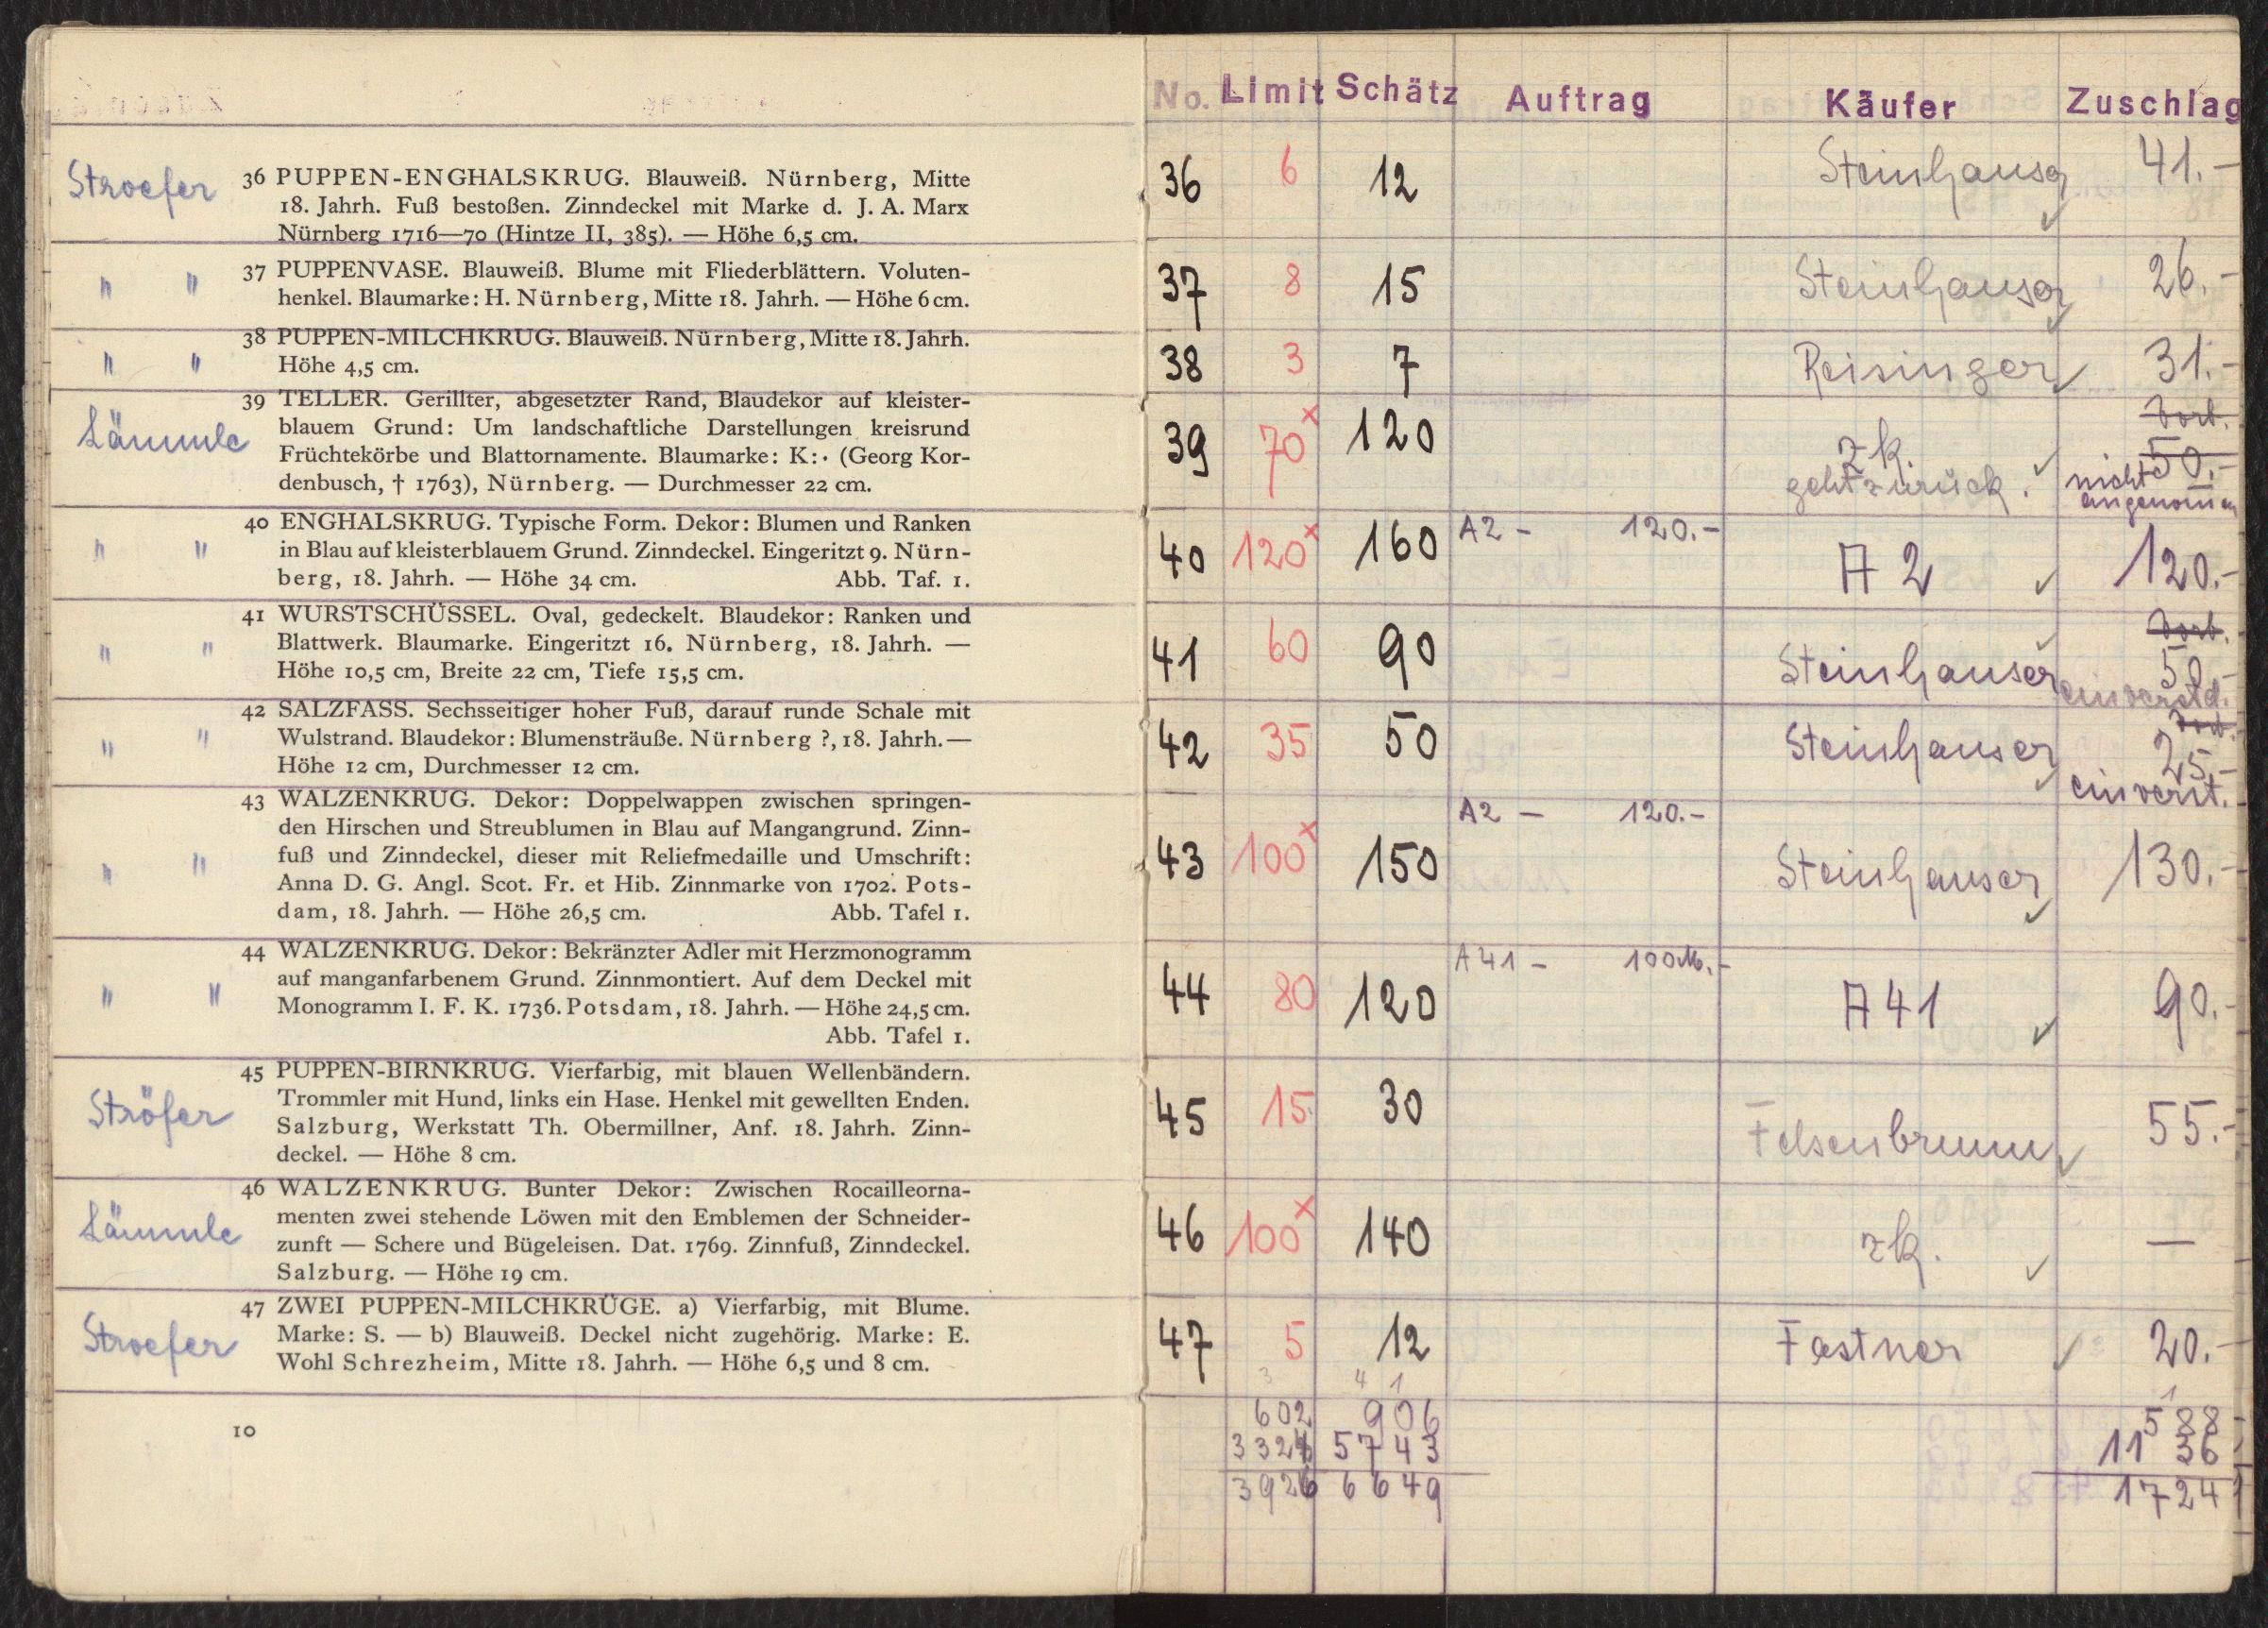 Stroefer 36 PUPPEN-ENGHALSKRUG. Blauweiß. Nürnberg, Mitte
18. Jahrh. Fuß bestoßen. Zinndeckel mit Marke d. J. A. Marx
Nürnberg 1716—70 (Hintze II, 385). — Höhe 6,5 cm.
" " 37 PUPPENVASE. Blauweiß. Blume mit Fliederblättern. Voluten-
henkel. Blaumarke: H. Nürnberg, Mitte 18. Jahrh. — Höhe 6 cm.
" " 38 PUPPEN-MILCHKRUG. Blauweiß. Nürnberg, Mitte 18. Jahrh.
Höhe 4,5 cm.
39 TELLER. Gerillter, abgesetzter Rand, Blaudekor auf kleister-
Lämmle blauem Grund: Um landschaftliche Darstellungen kreisrund
Früchtekörbe und Blattornamente. Blaumarke: K:· (Georg Kor-
denbusch, † 1763), Nürnberg. — Durchmesser 22 cm.
40 ENGHALSKRUG. Typische Form. Dekor: Blumen und Ranken
" " in Blau auf kleisterblauem Grund. Zinndeckel. Eingeritzt 9. Nürn-
berg, 18. Jahrh. — Höhe 34 cm. Abb. Taf. 1.
41 WURSTSCHÜSSEL. Oval, gedeckelt. Blaudekor: Ranken und
" " Blattwerk. Blaumarke. Eingeritzt 16. Nürnberg, 18. Jahrh. —
Höhe 10,5 cm, Breite 22 cm, Tiefe 15,5 cm.
42 SALZFASS. Sechsseitiger hoher Fuß, darauf runde Schale mit
" " Wulstrand. Blaudekor: Blumensträuße. Nürnberg ?, 18. Jahrh. —
Höhe 12 cm, Durchmesser 12 cm.
43 WALZENKRUG. Dekor: Doppelwappen zwischen springen-
den Hirschen und Streublumen in Blau auf Mangangrund. Zinn-
" " fuß und Zinndeckel, dieser mit Reliefmedaille und Umschrift:
Anna D. G. Angl. Scot. Fr. et Hib. Zinnmarke von 1702. Pots-
dam, 18. Jahrh. — Höhe 26,5 cm. Abb. Tafel 1.
44 WALZENKRUG. Dekor: Bekränzter Adler mit Herzmonogramm
auf manganfarbenem Grund. Zinnmontiert. Auf dem Deckel mit
" " Monogramm I. F. K. 1736. Potsdam, 18. Jahrh. — Höhe 24,5 cm.
Abb. Tafel 1.
45 PUPPEN-BIRNKRUG. Vierfarbig, mit blauen Wellenbändern.
Ströfer Trommler mit Hund, links ein Hase. Henkel mit gewellten Enden.
Salzburg, Werkstatt Th. Obermillner, Anf. 18. Jahrh. Zinn-
deckel. — Höhe 8 cm.
46 WALZENKRUG. Bunter Dekor: Zwischen Rocailleorna-
Lämmle menten zwei stehende Löwen mit den Emblemen der Schneider-
zunft — Schere und Bügeleisen. Dat. 1769. Zinnfuß, Zinndeckel.
Salzburg. — Höhe 19 cm.
47 ZWEI PUPPEN-MILCHKRÜGE. a) Vierfarbig, mit Blume.
Stroefer Marke: S. — b) Blauweiß. Deckel nicht zugehörig. Marke: E.
Wohl Schrezheim, Mitte 18. Jahrh. — Höhe 6,5 und 8 cm.
10
No. Limit Schätz Auftrag Käufer Zuschlag
36 6 12 Steinhauser ✓ 41.-
37 8 15 Steinhauser ✓ 26.-
38 3 7 Reisinger ✓ 31.-
Vorb.
39 70× 120 zk. ✓ 50.-
geht zurück. nicht
angenommen
A2 - 120.-
40 120× 160 A 2 ✓ 120.-
Vorb.
41 60 90 Steinhauser ✓ 50.-
einverstd.
Vorb.
42 35 50 Steinhauser ✓ 25.-
einverst.
A2 - 120.-
43 100× 150 Steinhauser ✓ 130.-
A41 - 100M.-
44 80 120 A 41 ✓ 90.-
45 15 30 Felsenbrunn ✓ 55.-
46 100× 140 zk. ✓ —
47 5 12 Festner ✓ 20.-
3 4 1 1
602 906 588
3324 5743 1136
3926 6649 1724